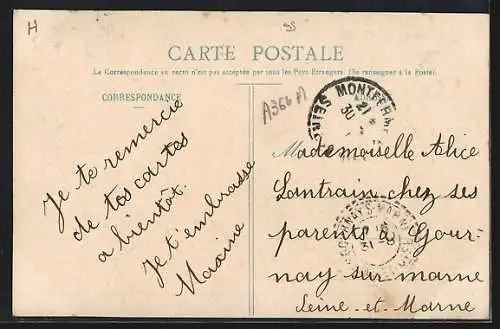 H
ss
CARTE POSTALE
La Correspondance au recto n'est pas acceptée par tous les Pays Étrangers. (Se renseigner à la Poste).
CORRESPONDANCE
A366 A
Je te remercie
de tes cartes
a bientôt.
Je t'embrasse
Maxine
MONTFERM
21
30
Mademoiselle Alice
Lantrain chez ses
parents à Gour-
nay sur marne
Seine-et-Marne
GOURNAY-S-MARNE
31
08